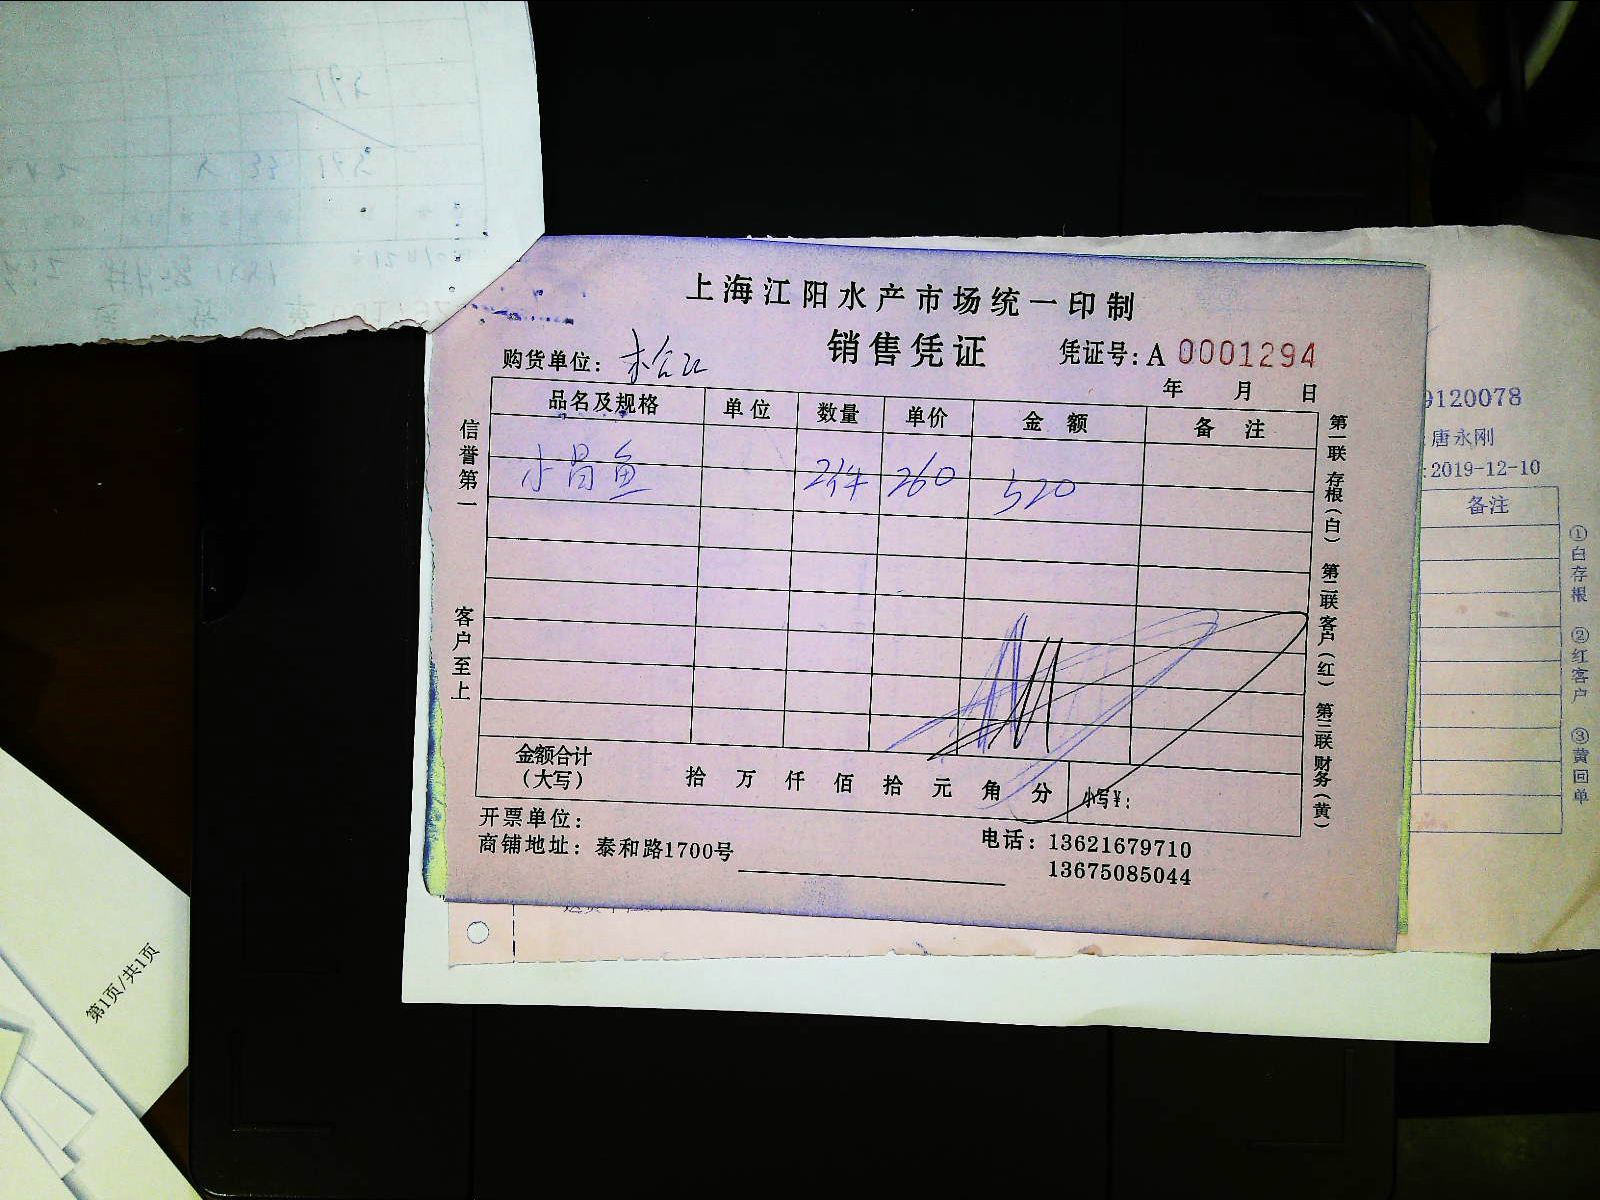 上海江阳水产市场统一印制
销售凭证
凭证号: A 0001294
购货单位:
年 月 日
品名及规格 单位 数量 单价 金额 备注
小昌鱼 2件 260 520
金额合计(大写) 拾 万 仟 佰 拾 元 角 分 小写¥:
开票单位:
商铺地址: 泰和路1700号
电话: 13621679710
13675085044
信誉第一 客户至上
第一联 存根(白) 第二联 客户(红) 第三联 财务(黄)
9120078
: 唐永刚
: 2019-12-10
备注
①白存根 ②红客户 ③黄回单
第1页/共1页